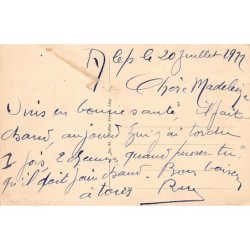 Alep le 20 Juillet 19
Chère Madeleine
Suis en bonne santé. Il fait
chaud, aujourd'hui j'ai tordu
fois, 2 chemises quand penses tu
qu'il doit faire chaud. Bons baisers
à tous